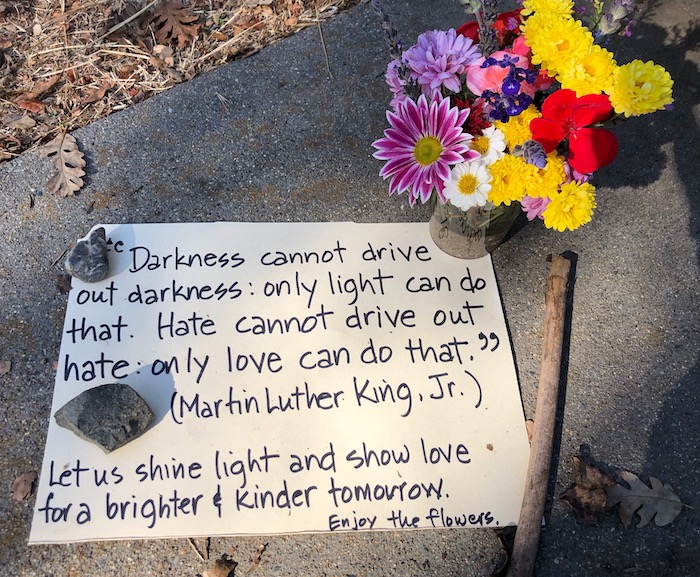 “Darkness cannot drive
out darkness: only light can do
that. Hate cannot drive out
hate: only love can do that.”
(Martin Luther King, Jr.)
Let us shine light and show love
for a brighter & kinder tomorrow.
Enjoy the flowers.